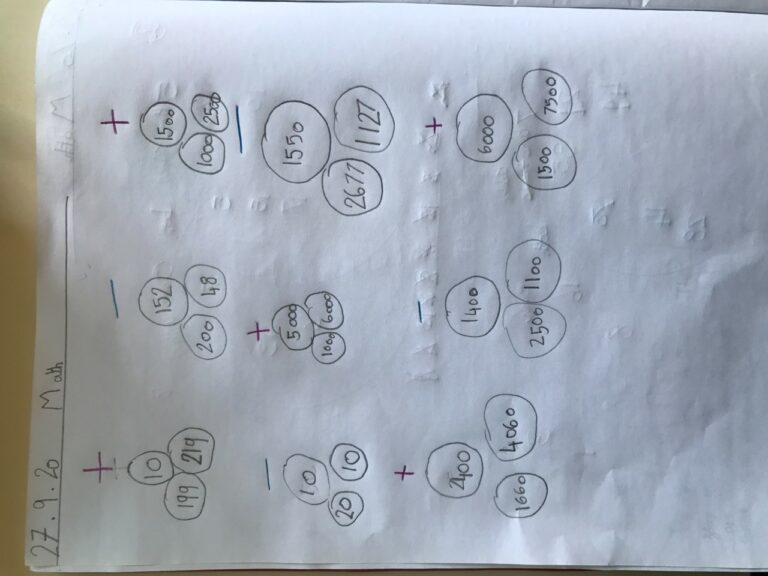 27.9.20 Math
+ − +
10 152 1500
199 219 200 48 1000 2500
− + −
10 5000 1550
20 10 1000 6000 2677 1127
+ − +
2400 1400 6000
1660 4060 2500 1100 1500 7500